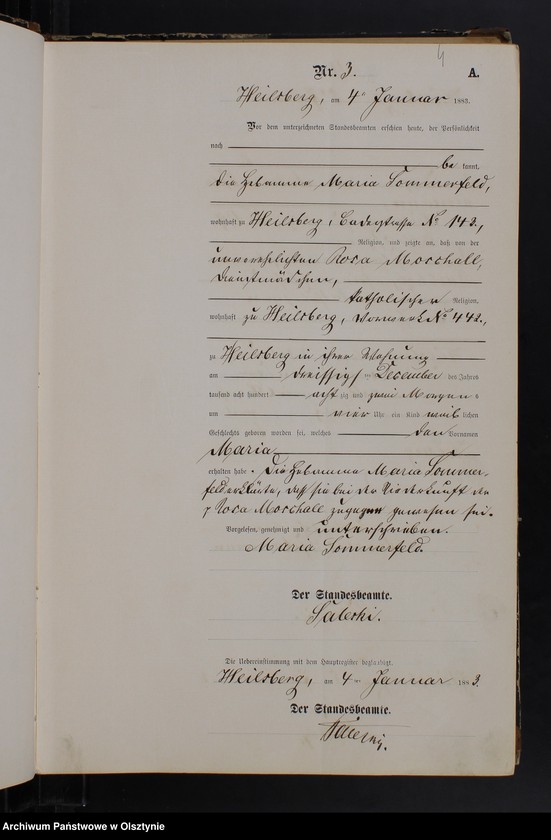 4
Nr. 3.
A.
Heilsberg, am 4ten Januar 1883.
Vor dem unterzeichneten Standesbeamten erschien heute, der Persönlichkeit
nach
be kannt,
die Hebamme Maria Sommerfeld,
wohnhaft zu Heilsberg, Baderstrasse No 143.,
Religion, und zeigte an, daß von der
unverehelichten Rosa Moschall,
Dienstmädchen,
katholischer Religion,
wohnhaft zu Heilsberg, Vorwerk No 442.,
zu Heilsberg in ihrer Wohnung
am dreissigsten December des Jahres
tausend acht hundert acht zig und zwei Morgens
um vier Uhr ein Kind weib lichen
Geschlechts geboren worden sei, welches den Vornamen
Maria
erhalten habe. Die Hebamme Maria Sommer-
feld erklärte, dass sie bei der Niederkunft der
Rosa Moschall zugegen gewesen sei.
Vorgelesen, genehmigt und unterschrieben.
Maria Sommerfeld.
Der Standesbeamte.
Die Uebereinstimmung mit dem Hauptregister beglaubigt.
Heilsberg, am 4ten Januar 1883.
Der Standesbeamte.
Archiwum Państwowe w Olsztynie